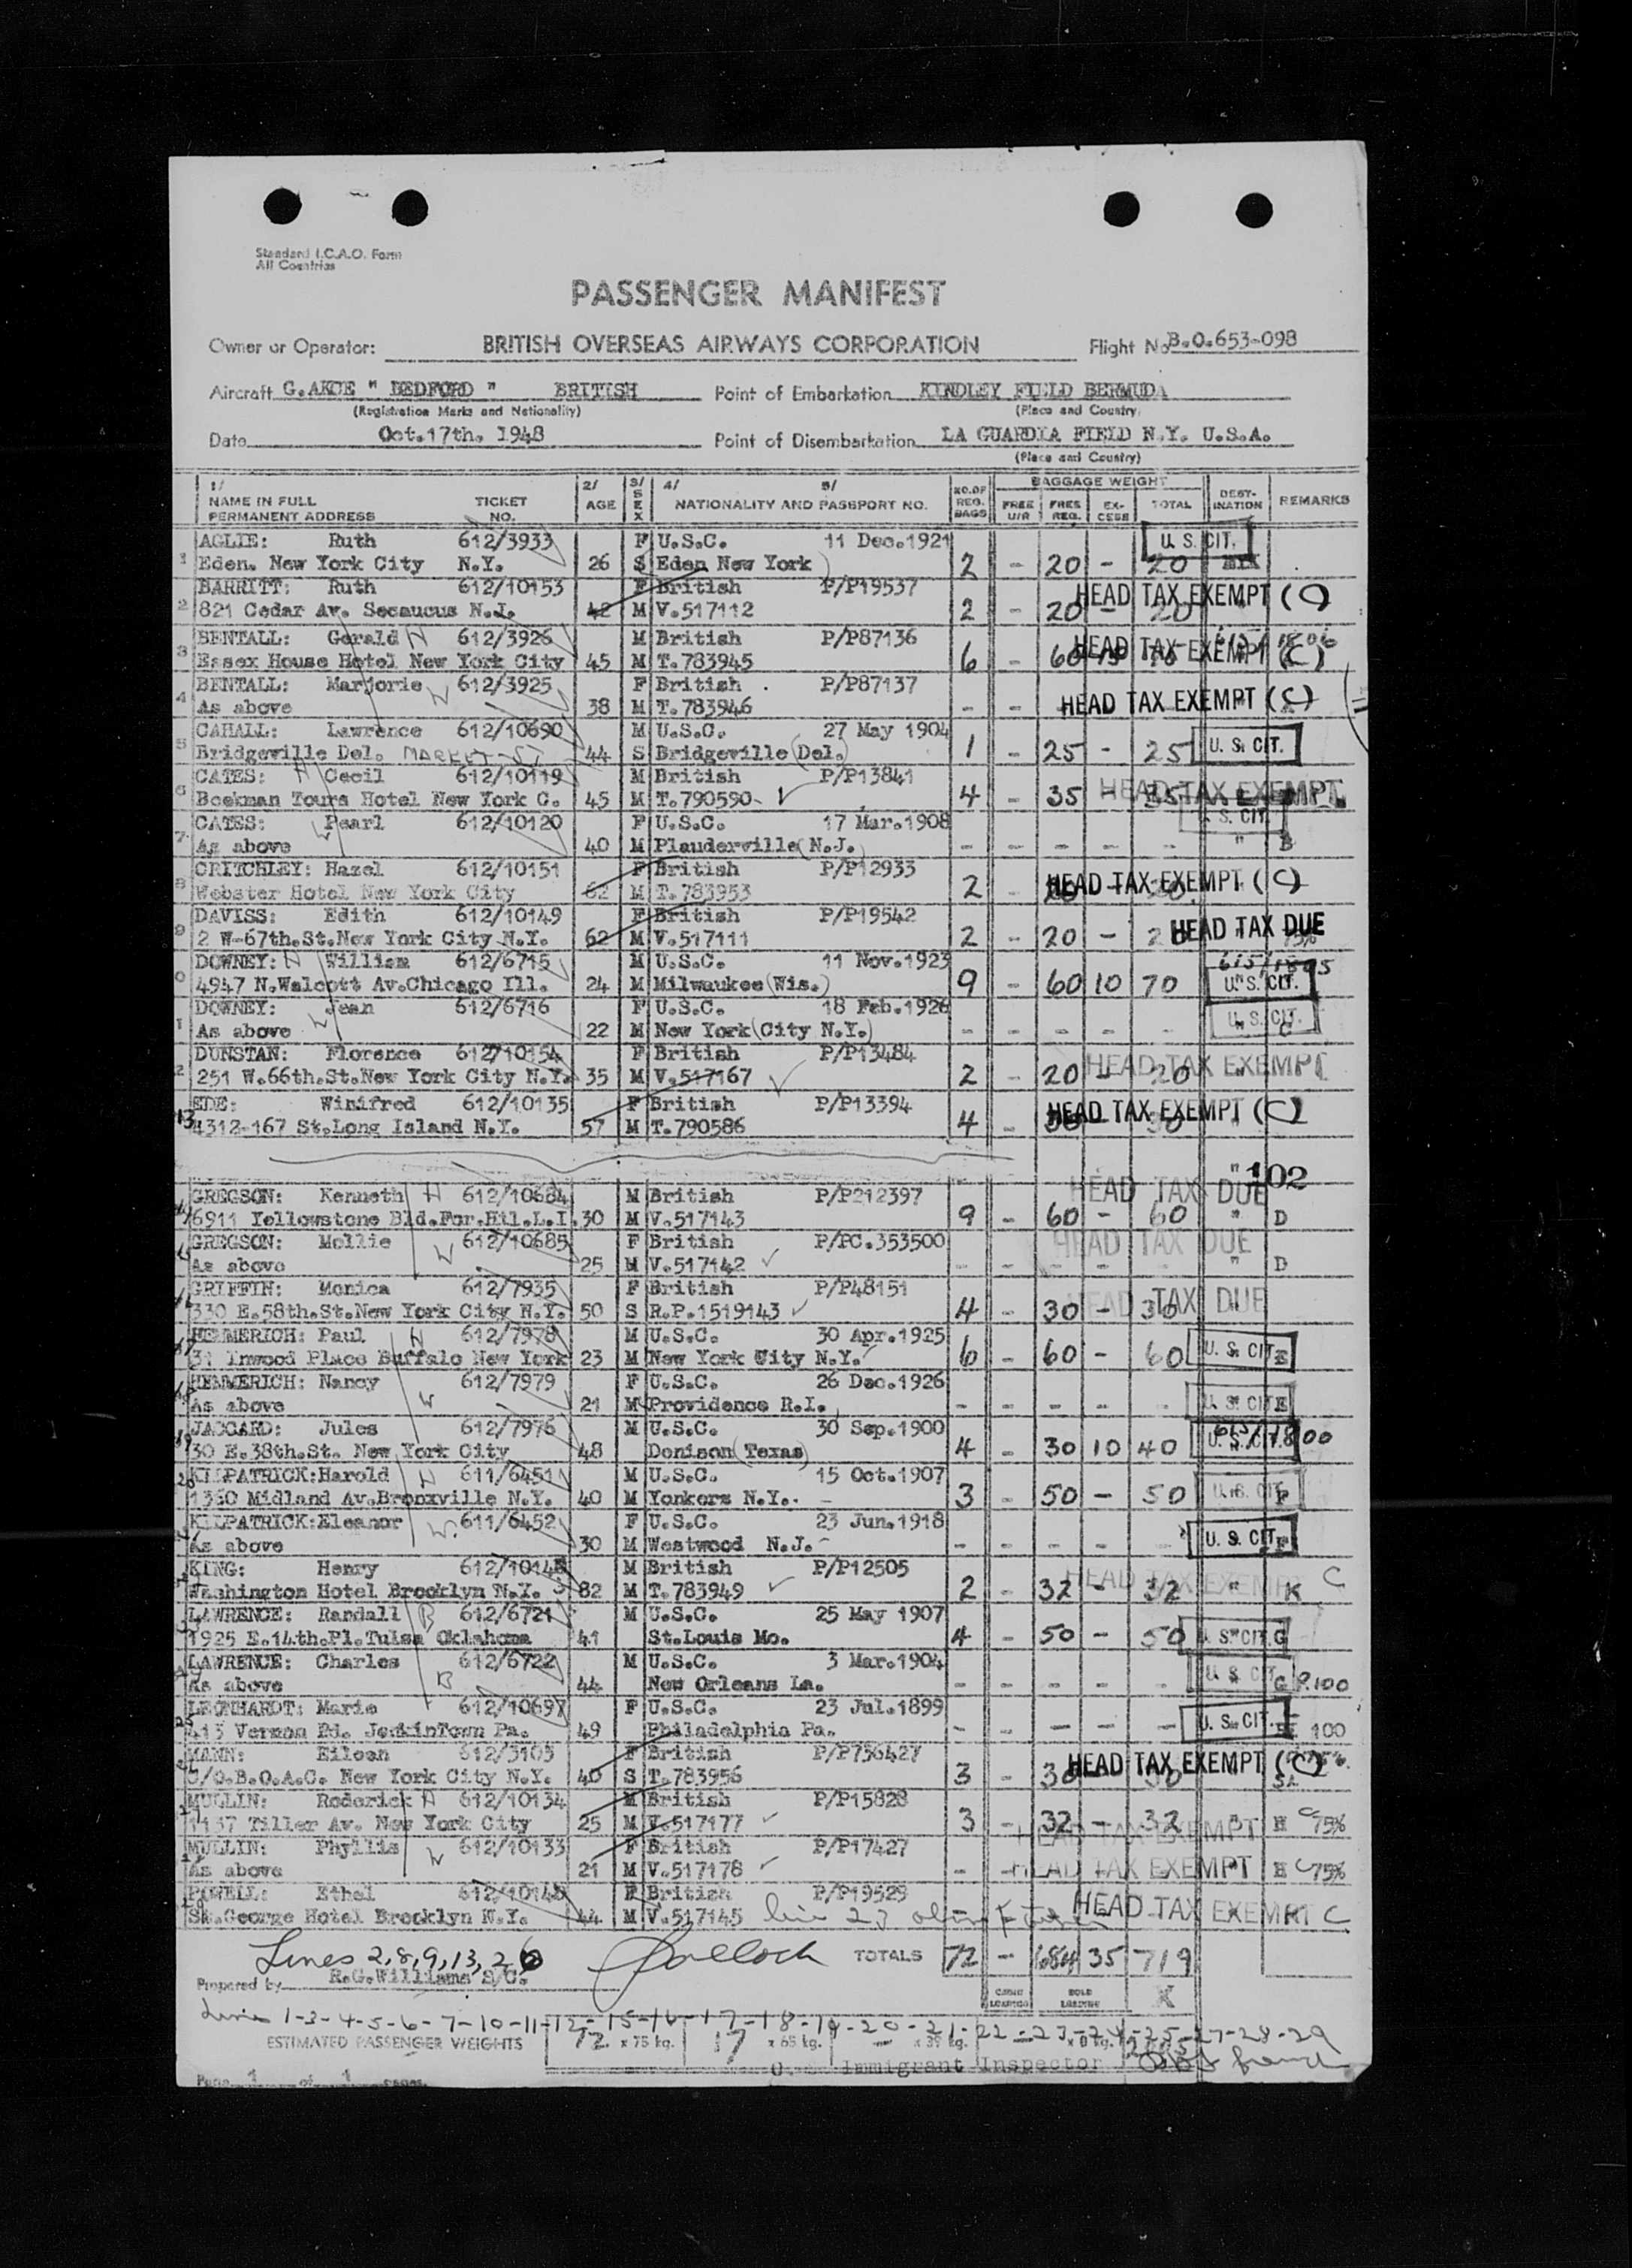 Standard I.C.A.O. Form
All Countries
PASSENGER MANIFEST
Owner or Operator: BRITISH OVERSEAS AIRWAYS CORPORATION Flight No B.O.653-098
Aircraft G.AKCE " BEDFORD " BRITISH Point of Embarkation KINDLEY FIELD BERMUDA
(Registration Marks and Nationality) (Place and Country)
Date Oct.17th. 1948 Point of Disembarkation LA GUARDIA FIELD N.Y. U.S.A.
(Place and Country)
1/ 2/ 3/ 4/ 5/ NO.OF BAGGAGE WEIGHT DEST-
NAME IN FULL TICKET AGE SEX NATIONALITY AND PASSPORT NO. REG. FREE FREE EX- TOTAL INATION REMARKS
PERMANENT ADDRESS NO. BAGS U/R REG. CESS
AGLIE: Ruth 612/3933 F U.S.C. 11 Dec.1921 U. S. CIT.
1 Eden. New York City N.Y. 26 S Eden New York 2 - 20 - 20
BARRITT: Ruth 612/10153 F British P/P19537 HEAD TAX EXEMPT (C)
2 821 Cedar Av. Secaucus N.J. 42 M V.517112 2 - 20 - 20
BENTALL: Gerald H 612/3926 M British P/P87136
3 Essex House Hotel New York City 45 M T.783945 6 - 60 15 HEAD TAX EXEMPT (C)
BENTALL: Marjorie W 612/3925 F British P/P87137
4 As above 38 M T.783946 - - HEAD TAX EXEMPT (C)
CAHALL: Lawrence 612/10690 M U.S.C. 27 May 1904
5 Bridgeville Del. MARKET ST 44 S Bridgeville (Del.) 1 - 25 - 25 U. S. CIT.
CATES: H Cecil 612/10119 M British P/P13841
6 Beekman Tours Hotel New York C. 45 M T.790590 4 - 35 - 35 HEAD TAX EXEMPT
CATES: W Pearl 612/10120 F U.S.C. 17 Mar.1908 U. S. CIT.
7 As above 40 M Plauderville (N.J.) - - - - - " B
CRITCHLEY: Hazel 612/10151 F British P/P12933
8 Webster Hotel New York City 62 M T.783953 2 - 20 - 20 HEAD TAX EXEMPT (C)
DAVISS: Edith 612/10149 F British P/P19542
9 2 W-67th.St.New York City N.Y. 62 M V.517111 2 - 20 - 20 HEAD TAX DUE
DOWNEY: H William 612/6715 M U.S.C. 11 Nov.1923
0 4947 N.Walcott Av.Chicago Ill. 24 M Milwaukee (Wis.) 9 - 60 10 70 U. S. CIT.
DOWNEY: Jean 612/6716 F U.S.C. 18 Feb.1926
1 As above W 22 M New York (City N.Y.) - - - - - U. S. CIT.
DUNSTAN: Florence 612/10154 F British P/P13484
2 251 W.66th.St.New York City N.Y. 35 M V.517167 2 - 20 - 20 HEAD TAX EXEMPT
EDE: Winifred 612/10135 F British P/P13394
13 4312-167 St.Long Island N.Y. 57 M T.790586 4 - 30 - 30 HEAD TAX EXEMPT (C)
" 102
GREGSON: Kenneth H 612/10684 M British P/P212397 HEAD TAX DUE
6911 Yellowstone Bld.For.Hil.L.I. 30 M V.517143 9 - 60 - 60 " D
GREGSON: Mollie W 612/10685 F British P/PC.353500 HEAD TAX DUE
As above 25 M V.517142 - - - - - " D
GRIFFIN: Monica 612/7935 F British P/P48151
330 E.58th.St.New York City N.Y. 50 S R.P.1519143 4 - 30 - 30 HEAD TAX DUE
HEMMERICH: Paul H 612/7978 M U.S.C. 30 Apr.1925
31 Inwood Place Buffalo New York 23 M New York City N.Y. 6 - 60 - 60 U. S. CIT. E
HEMMERICH: Nancy W 612/7979 F U.S.C. 26 Dec.1926
As above 21 M Providence R.I. - - - - - U. S. CIT. E
JACCARD: Jules 612/7976 M U.S.C. 30 Sep.1900
30 E.38th.St. New York City 48 Denison (Texas) 4 - 30 10 40 U. S. CIT.
KILPATRICK:Harold H 611/6451 M U.S.C. 15 Oct.1907
1360 Midland Av.Bronxville N.Y. 40 M Yonkers N.Y. 3 - 50 - 50 U. S. CIT. F
KILPATRICK:Eleanor W. 611/6452 F U.S.C. 23 Jun.1918
As above 30 M Westwood N.J. - - - - - U. S. CIT. F
KING: Henry 612/10148 M British P/P12505
Washington Hotel Brooklyn N.Y. 82 M T.783949 2 - 32 - 32 HEAD TAX EXEMPT " K C
LAWRENCE: Randall B 612/6721 M U.S.C. 25 May 1907
1925 E.14th.Pl.Tulsa Oklahoma 41 St.Louis Mo. 4 - 50 - 50 U. S. CIT. G
LAWRENCE: Charles B 612/6722 M U.S.C. 3 Mar.1904
As above 44 New Orleans La. - - - - - U. S. CIT. G P.100
LEONHARDT: Marie 612/10697 F U.S.C. 23 Jul.1899
413 Vernon Rd. JenkinTown Pa. 49 Philadelphia Pa. - - - - - U. S. CIT. 100
MANN: Eileen 612/3103 F British P/P756427
C/O.B.O.A.C. New York City N.Y. 40 S T.783956 3 - 30 - 30 HEAD TAX EXEMPT (C)
MULLIN: Roderick H 612/10134 M British P/P15828
1137 Tiller Av. New York City 25 M V.517177 3 - 32 - 32 " H C 75%
MULLIN: Phyllis W 612/10133 F British P/P17427 HEAD TAX EXEMPT
As above 21 M V.517178 - - HEAD TAX EXEMPT H C 75%
POWELL: Ethel 612/10148 F British P/P19529
St.George Hotel Brooklyn N.Y. 44 M V.517145 HEAD TAX EXEMPT K C
Lines 2,8,9,13,26 TOTALS 72 - 684 35 719
Prepared by R.G.Williams S/C.
CABIN LOADING HOLD LOADING X
Lines 1-3-4-5-6-7-10-11-12-15-16-17-18-19-20-21-22-23-24-25-27-28-29
ESTIMATED PASSENGER WEIGHTS 12 x 75 kg. 17 x 65 kg. - x 39 kg. - x 8 kg.
Immigrant Inspector
Page 1 of 1 pages.